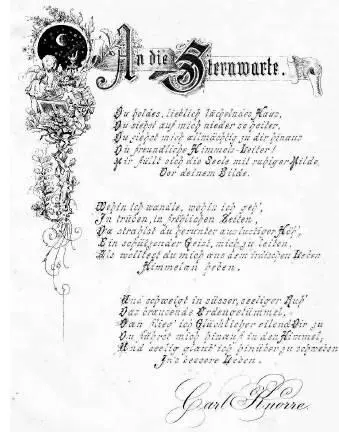 An die Sternwarte.
Du holdes, lieblich lächelndes Haus,
Du siehst auf mich nieder so heiter,
Du ziehst mich allmächtig zu dir hinaus
Du freundliche Himmels-Leiter!
Mir füllt sich die Seele mit ruhiger Milde,
Vor deinem Bilde.
Wohin ich wandle, wohin ich geh',
In trüben, in fröhlichen Zeiten,
Da strahlst du herunter aus luftiger Höh',
Ein schützender Geist, mich zu leiten,
Als wolltest du mich aus dem ird'schen Leben
Himmelan heben.
Und schweigt in süsser, seeliger Ruh'
Das brausende Erdengetümmel,
Dan flieg' ich Glücklicher eilend Dir zu
Du führst mich hinauf in den Himmel,
Und seelig glaub' ich hinüber zu schweben
In's bessere Leben.
Carl Knorre.